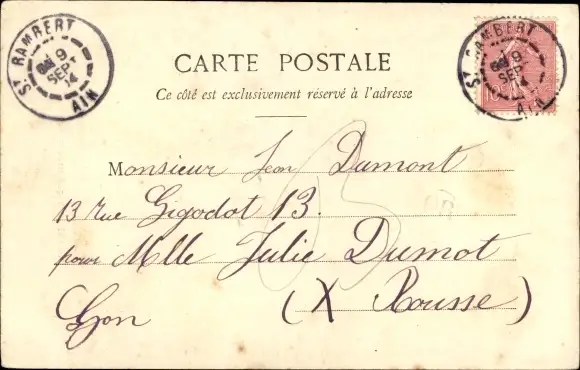 ST RAMBERT
9
SEPT
14
AIN
ST RAMBERT
9
SEPT
14
AIN
10
CARTE POSTALE
Ce côté est exclusivement réservé à l'adresse
Monsieur Jean Dumont
13 rue Gigodot 13.
pour Mlle Julie Dumot
Lyon (X Rousse)